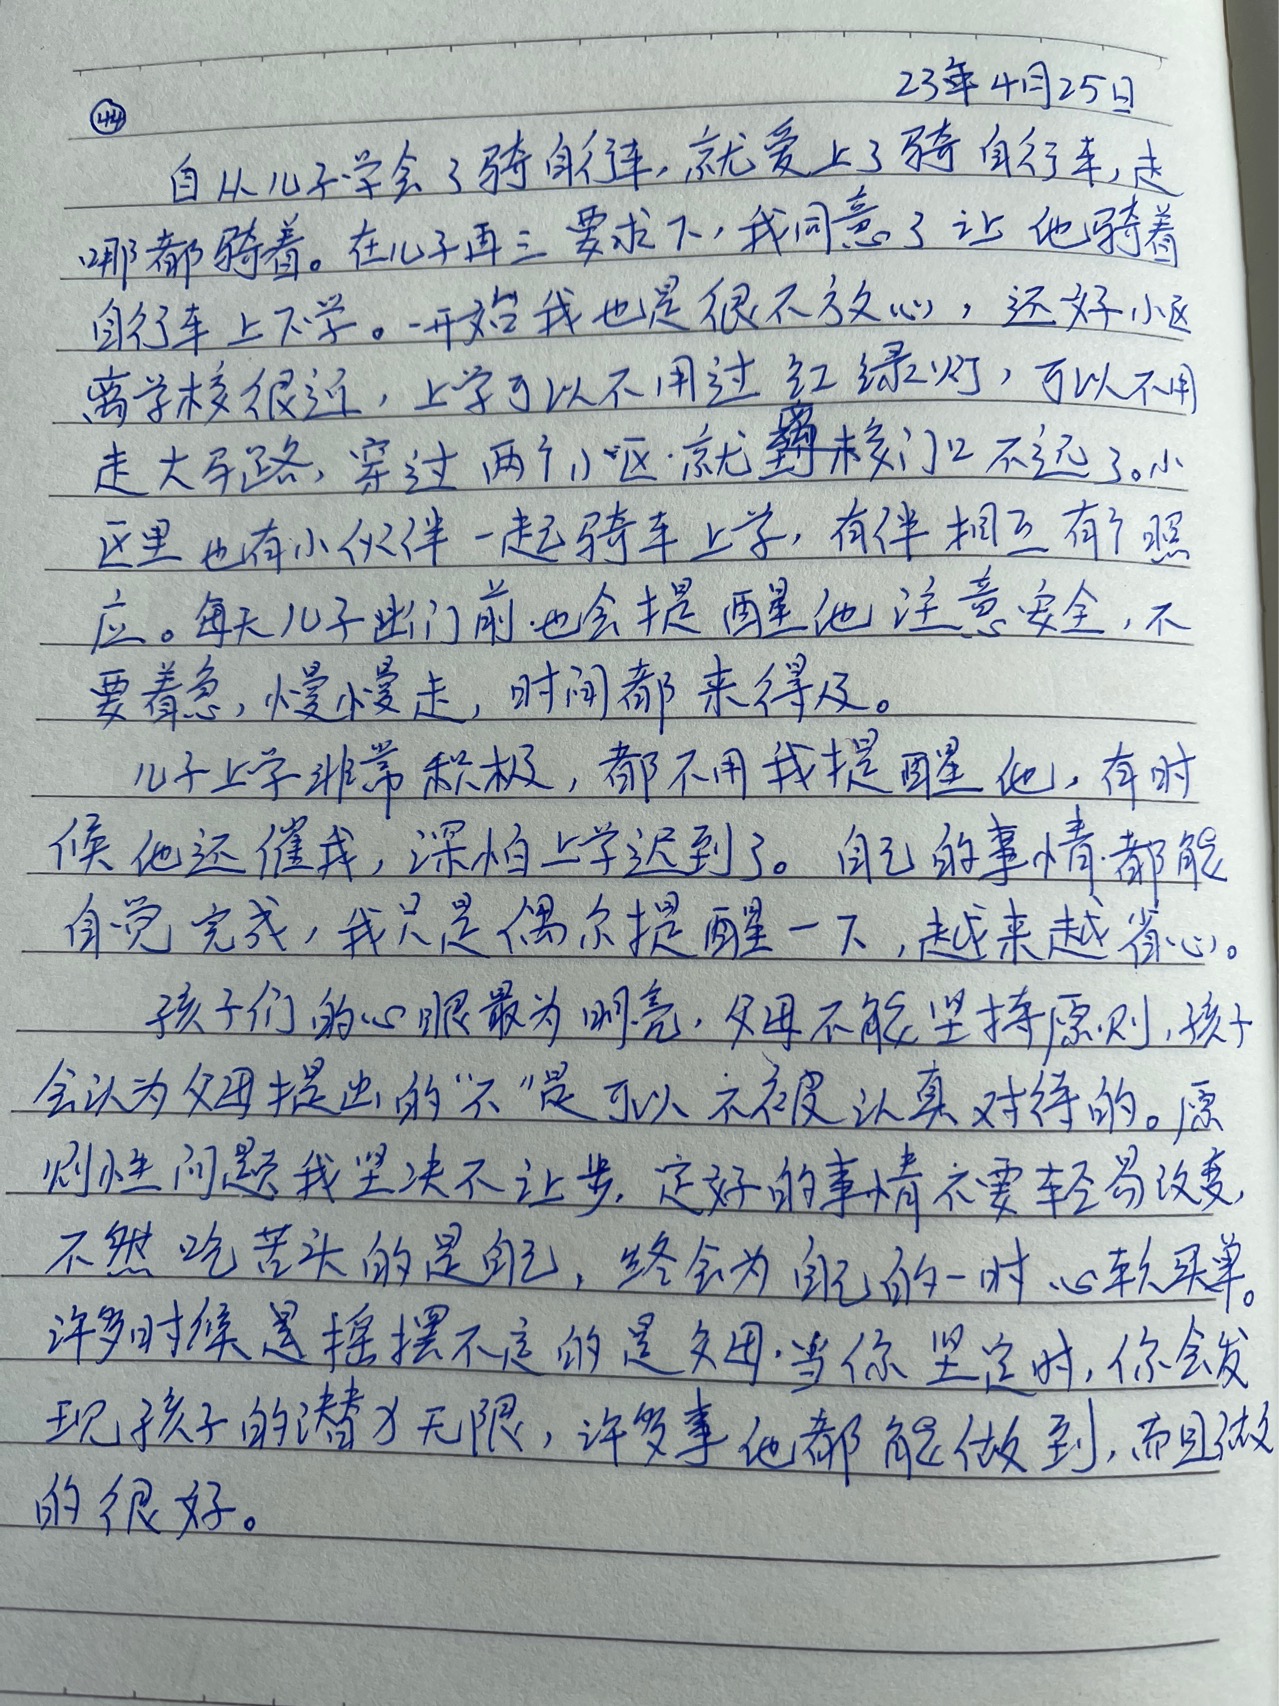 23年4月25日
44
自从儿子学会了骑自行车,就爱上了骑自行车,走
哪都骑着。在儿子再三要求下,我同意了让他骑着
自行车上下学。一开始我也是很不放心,还好小区
离学校很近,上学可以不用过红绿灯,可以不用
走大马路,穿过两个小区.就离校门口不远了。小
区里也有小伙伴一起骑车上学,有伴相互有个照
应。每天儿子出门前.也会提醒他注意安全,不
要着急,慢慢走,时间都来得及。
儿子上学非常积极,都不用我提醒他,有时
候他还催我,深怕上学迟到了。自己的事情.都能
自觉完成,我只是偶尔提醒一下,越来越省心。
孩子们的心眼最为明亮.父母不能坚持原则,孩子
会认为父母提出的“不”是可以不被认真对待的。原
则性问题我坚决不让步.定好的事情不要轻易改变,
不然吃苦头的是自己,终会为自己的一时心软买单。
许多时候是摇摆不定的是父母.当你坚定时,你会发
现孩子的潜力无限,许多事他都能做到,而且做
的很好。